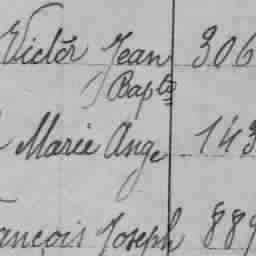 Victor Jean 306
Bapte
Marie Ange 143
ançois Joseph 889